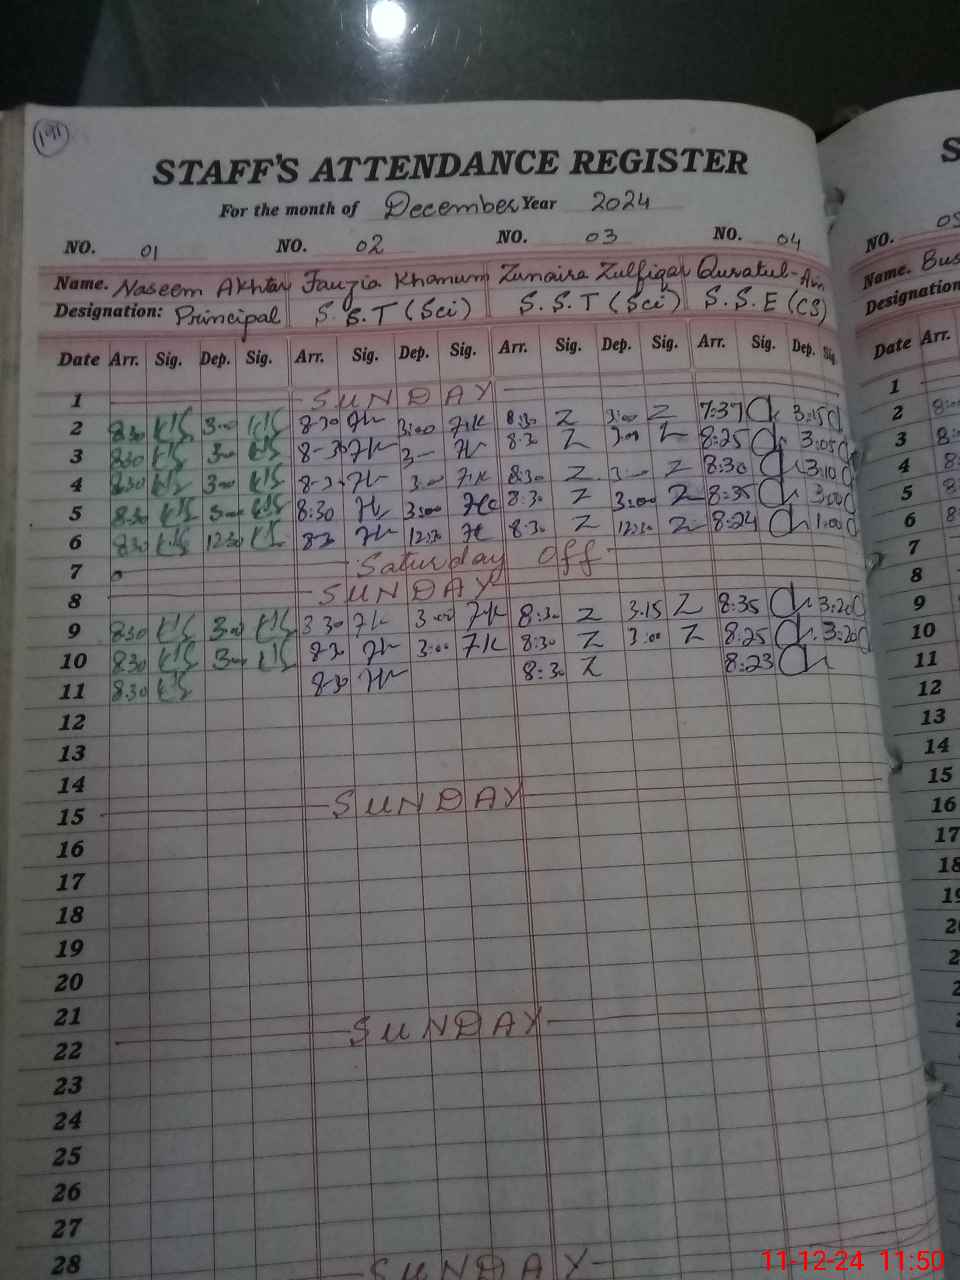 191
STAFF'S ATTENDANCE REGISTER
For the month of December Year 2024
NO. 01 NO. 02 NO. 03 NO. 04
Name. Naseem Akhtar Fauzia Khanum Zunaira Zulfiqar Quratul-Ain
Designation: Principal S.S.T (Sci) S.S.T (Sci) S.S.E (CS)
Date Arr. Sig. Dep. Sig. Arr. Sig. Dep. Sig. Arr. Sig. Dep. Sig. Arr. Sig. Dep. Sig.
1 SUNDAY
2 8:30 3:00 8-30 3:00 8:30 Z 3:00 Z 7:37 3:15
3 8:30 3:00 8-30 3- 8:30 Z 3:00 Z 8:25 3:05
4 8:30 3:00 8-30 3:00 8:30 Z 3:00 Z 8:30 3:10
5 8:30 3:00 8:30 3:00 8:30 Z 3:00 Z 8:35 3:00
6 8:30 12:30 8:30 12:30 8:30 Z 12:30 Z 8:24 1:00
7 Saturday Off
8 SUNDAY
9 8:30 3:00 8:30 3:00 8:30 Z 3.15 Z 8:35 3:20
10 8:30 3:00 8:30 3:00 8:30 Z 3:00 Z 8:25 3:20
11 8:30 8:30 8:30 Z 8:23
12
13
14
15 SUNDAY
16
17
18
19
20
21
22 SUNDAY
23
24
25
26
27
28
SUNDAY
S
NO. 05
Name. Bus
Designation
Date Arr.
1
2
3
4
5
6
7
8
9
10
11
12
13
14
15
16
17
18
11-12-24 11:50